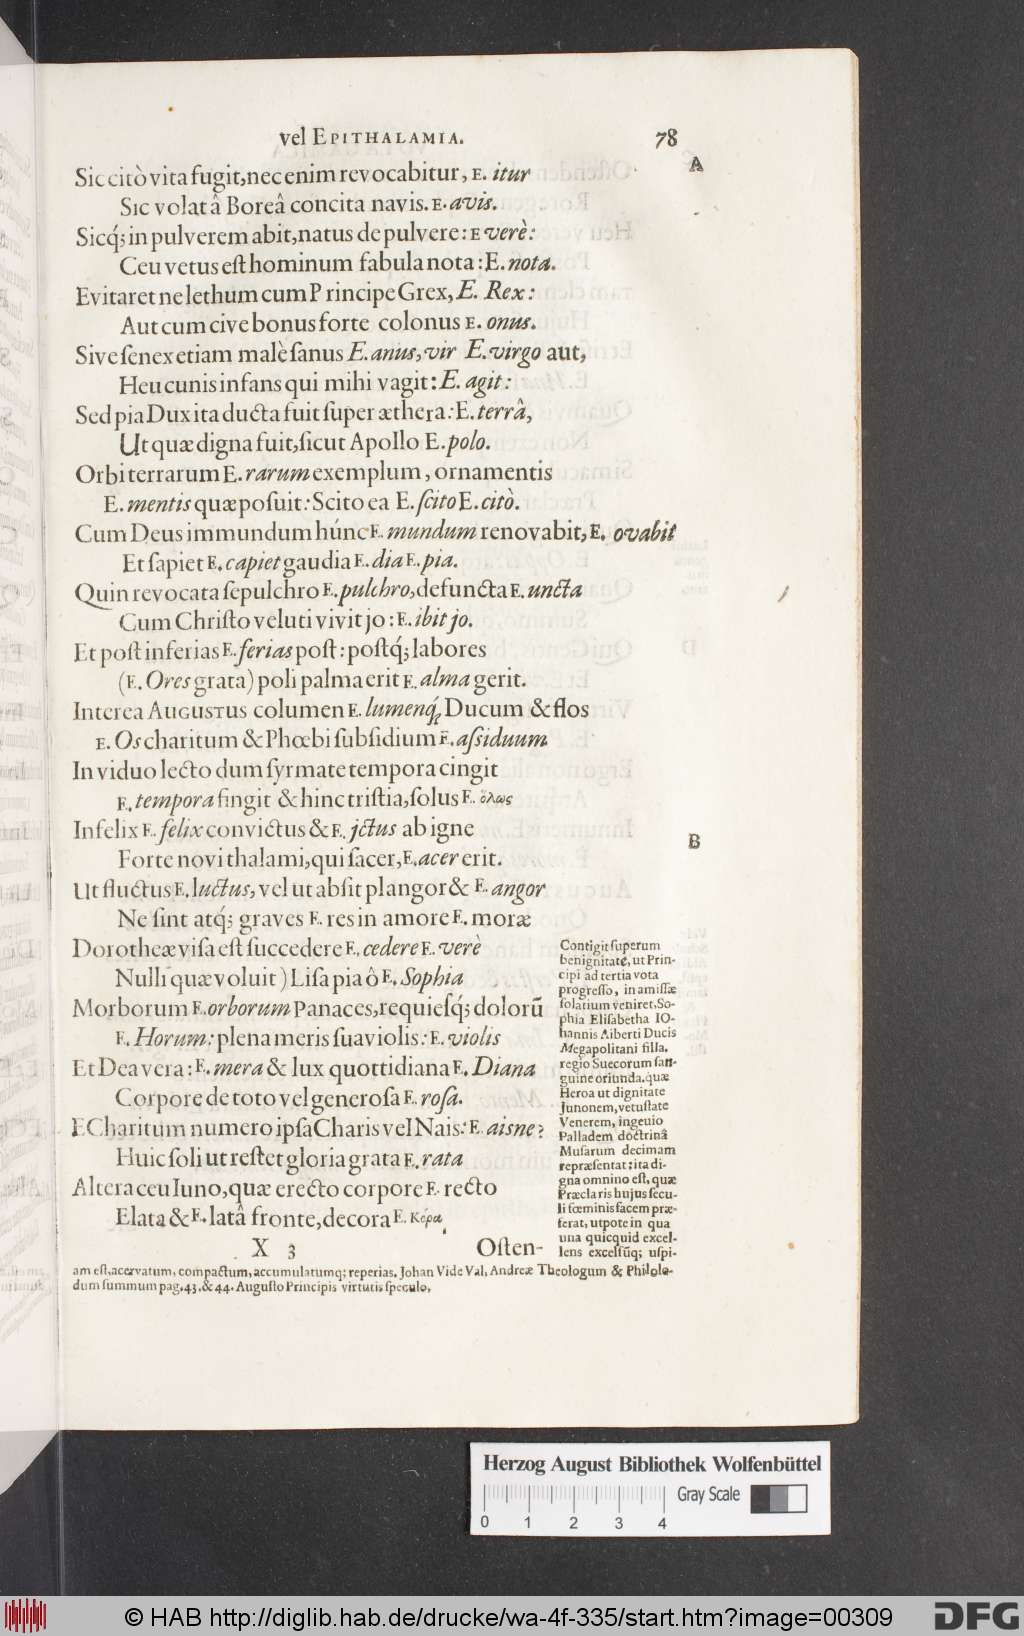 vel EPITHALAMIA. 78
A
Sic citò vita fugit, nec enim revocabitur, E. itur
Sic volat â Boreâ concita navis. E. avis.
Sicq́; in pulverem abit, natus de pulvere: E verè:
Ceu vetus eſt hominum fabula nota: E. nota.
Evitaret ne lethum cum Principe Grex, E. Rex:
Aut cum cive bonus forte colonus E. onus.
Sive ſenex etiam malè ſanus E. anus, vir E. virgo aut,
Heu cunis infans qui mihi vagit: E. agit:
Sed pia Dux ita ducta fuit ſuper æthera: E. terrâ,
Ut quæ digna fuit, ſicut Apollo E. polo.
Orbi terrarum E. rarum exemplum, ornamentis
E. mentis quæ poſuit: Scito ea E. ſcito E. citò.
Cum Deus immundum húnc E. mundum renovabit, E. ovabit
Et ſapiet E. capiet gaudia E. dia E. pia.
Quin revocata ſepulchro E. pulchro, defuncta E. uncta
Cum Chriſto veluti vivit jo: E. ibit jo.
Et poſt inferias E. ferias poſt: poſtq́; labores
(E. Ores grata) poli palma erit E. alma gerit.
Interea AUGUSTUS columen E. lumenq́; Ducum & flos
E. Os charitum & Phœbi ſubſidium E. aſsiduum
In viduo lecto dum ſyrmate tempora cingit
E. tempora fingit & hinc triſtia, ſolus E. ὁλως
Infelix E. felix convictus & E. jctus ab igne
Forte novi thalami, qui ſacer, E. acer erit.
B
Ut fluctus E. luctus, vel ut abſit plangor & E. angor
Ne ſint atq́; graves E. res in amore E. moræ
Dorotheæ viſa eſt ſuccedere E. cedere E. verè
Nulli quæ voluit) Liſa pia ô E. Sophia
Morborum E. orborum Panaces, requieſq́; dolorū
E. Horum: plena meris ſuaviolis: E. violis
Et Dea vera: E. mera & lux quottidiana E. Diana
Corpore de toto vel generoſa E. roſa.
E Charitum numero ipſa Charis vel Nais: E. aisne?
Huic ſoli ut reſtet gloria grata E. rata
Altera ceu Iuno, quæ erecto corpore E. recto
Elata & E. latâ fronte, decora E. Κόρα
Contigit ſuperum
benignitate, ut Prin-
cipi ad tertia vota
progreſſo, in amiſſæ
ſolatium veniret, So-
phia Eliſabetha IO-
hannis Alberti Ducis
Megapolitani filla.
regio Suecorum ſan-
guine oriunda. quæ
Heroa ut dignitate
Junonem, vetuſtate
Venerem, ingeuio
Palladem doctrinâ
Muſarum decimam
repræſentat: ita di-
gna omnino eſt, quæ
Præclaris hujus ſecu-
li fœminis facem præ-
ferat, utpote in qua
una quicquid excel-
lens excelſūq; uſpi-
X 3 Oſten-
am eſt, acervatum, compactum, accumulatumq; reperias. Johan Vide Val, Andreæ Theologum & Philolo-
dum ſummum pag. 43. & 44. Auguſto Principis virtutis ſpeculo,
Herzog August Bibliothek Wolfenbüttel
Gray Scale
0 1 2 3 4
© HAB http://diglib.hab.de/drucke/wa-4f-335/start.htm?image=00309
DFG